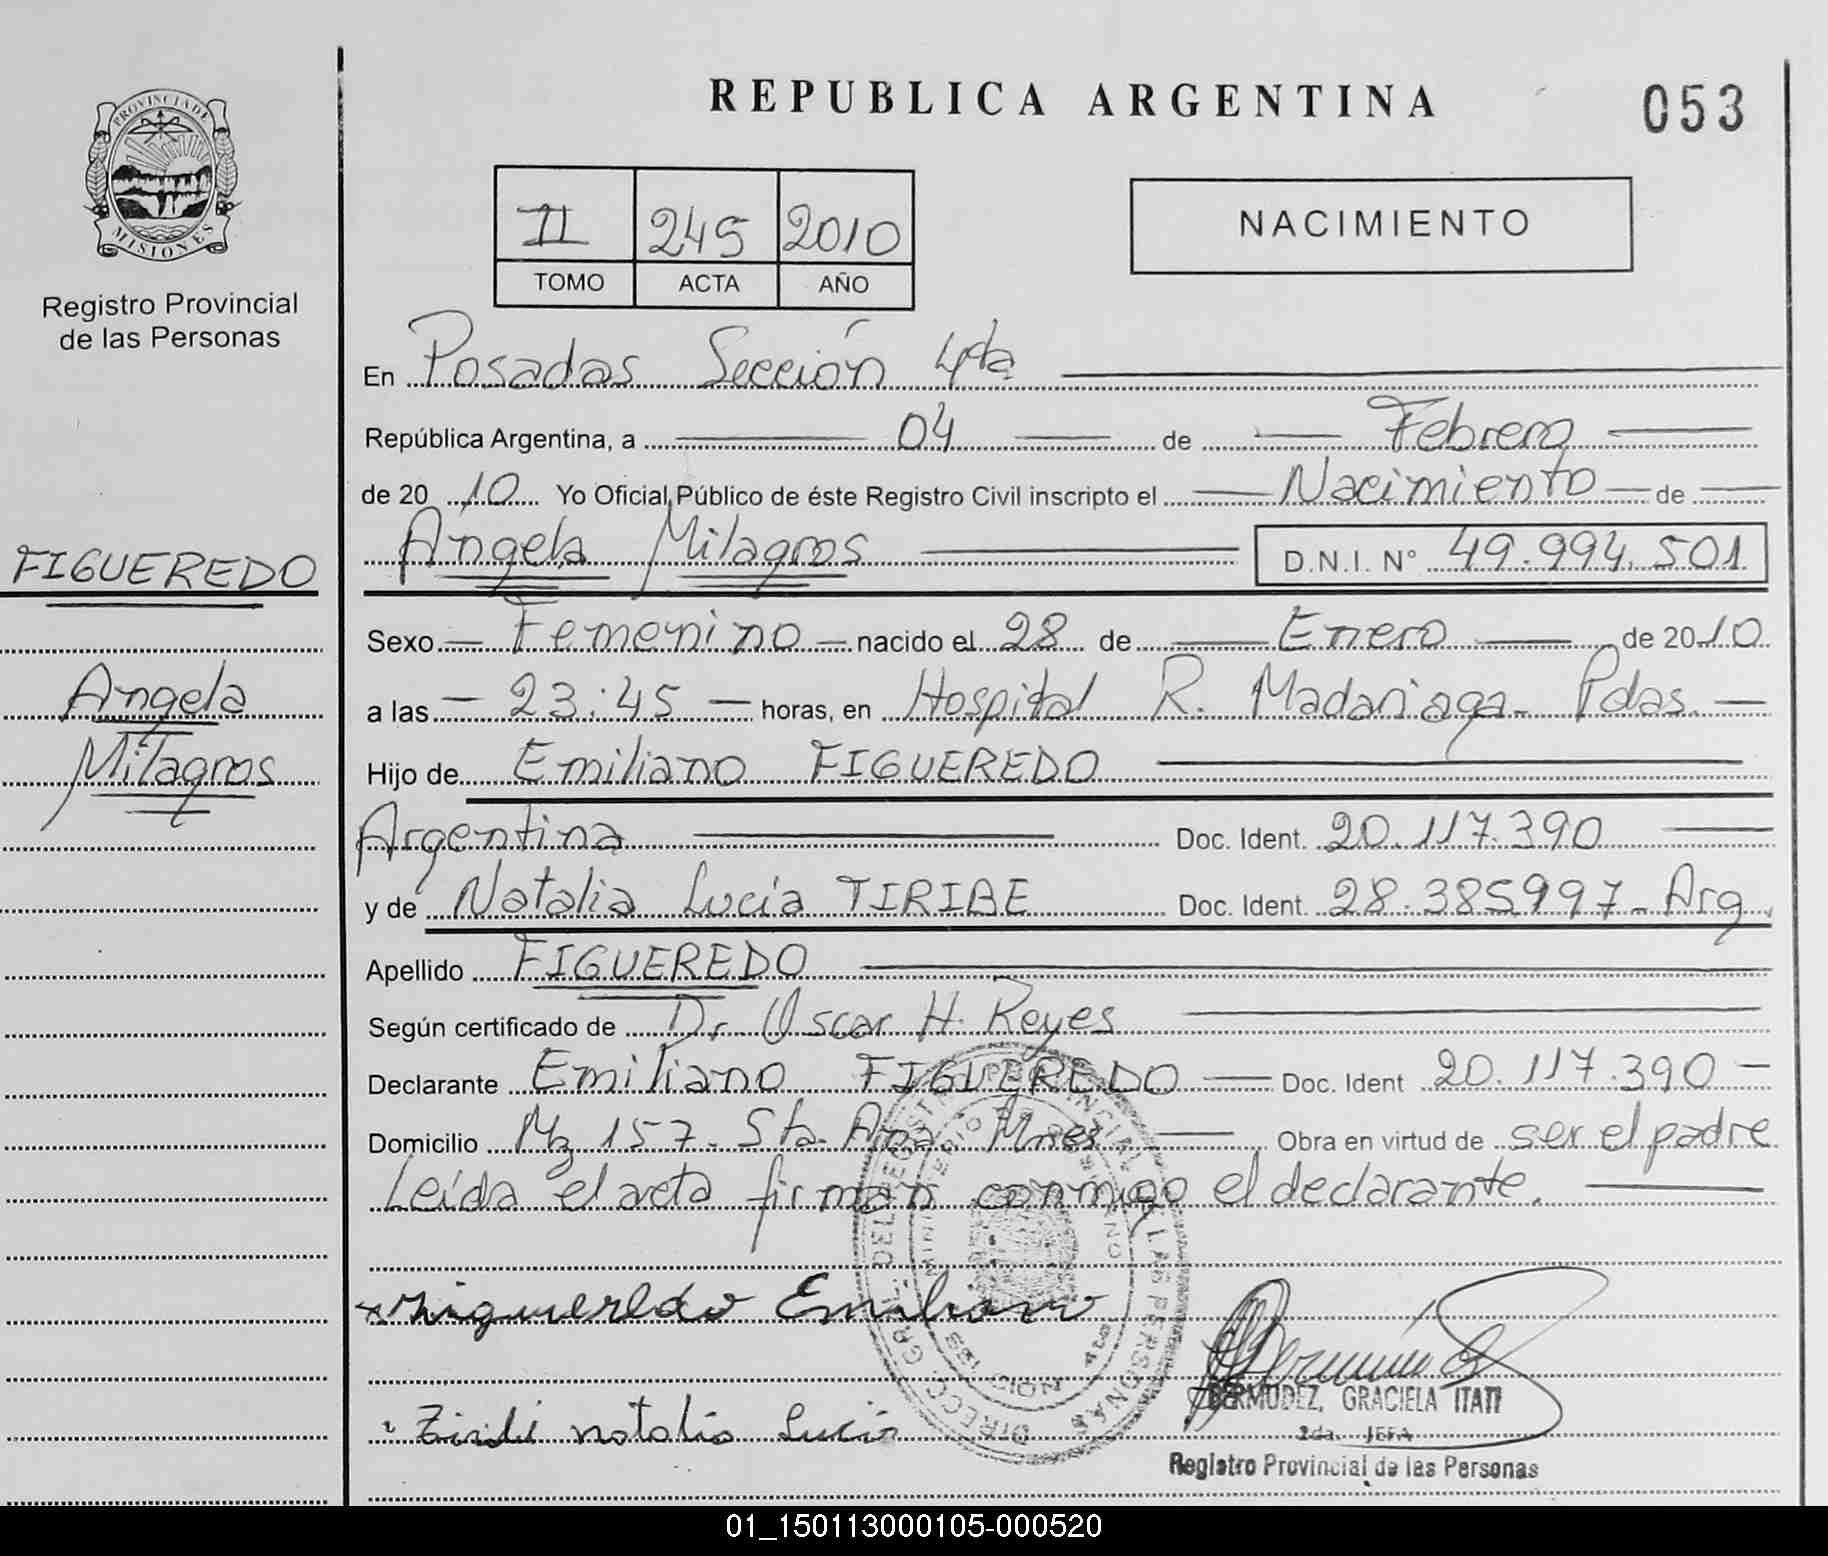 REPUBLICA ARGENTINA
053
PROVINCIA DE
MISIONES
Registro Provincial
de las Personas
II 245 2010
TOMO ACTA AÑO
NACIMIENTO
En Posadas Sección 4ta
República Argentina, a 04 de Febrero
de 20 10 Yo Oficial Público de éste Registro Civil inscripto el Nacimiento de
Angela Milagros D.N.I. N° 49.994.501
FIGUEREDO
Angela
Milagros
Sexo Femenino nacido el 28 de Enero de 2010
a las 23:45 horas, en Hospital R. Madariaga - Pdas.
Hijo de Emiliano FIGUEREDO
Argentina Doc. Ident. 20.117.390
y de Natalia Lucía TIRIBE Doc. Ident. 28.385997 - Arg.
Apellido FIGUEREDO
Según certificado de Dr. Oscar H. Reyes
Declarante Emiliano FIGUEREDO Doc. Ident 20.117.390
Domicilio Mz 157 - Sta. Ana - Mnes Obra en virtud de ser el padre
Leída el acta firman conmigo el declarante.
Emiliano
natalia Lucia
BERMUDEZ, GRACIELA ITATI
2da. JEFA
Registro Provincial de las Personas
01_150113000105-000520